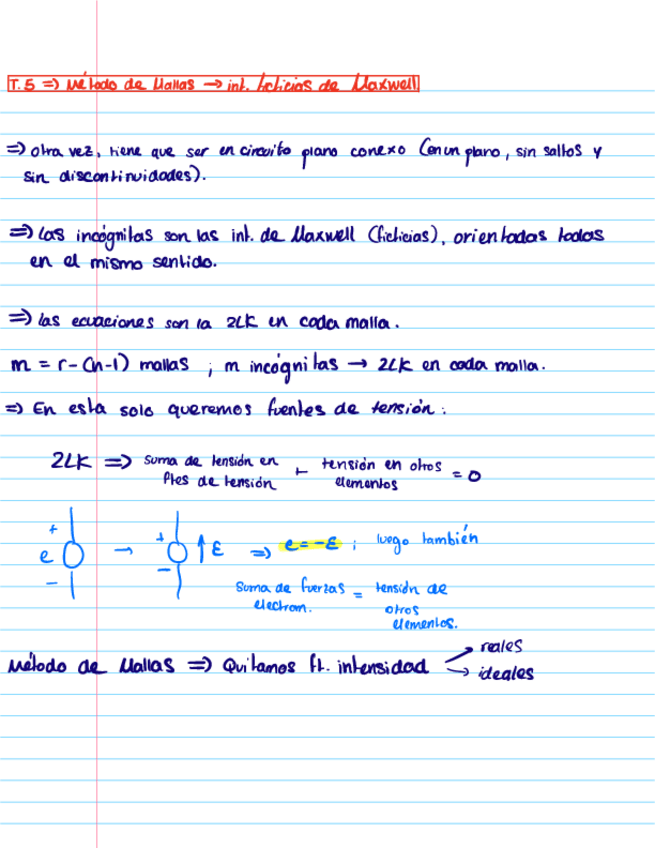 T.5 => Método de Mallas → int. ficticias de Maxwell
=> otra vez, tiene que ser en circuito plano conexo (en un plano, sin saltos y
sin discontinuidades).
=> Las incógnitas son las int. de Maxwell (ficticias), orientadas todas
en el mismo sentido.
=> las ecuaciones son la 2LK en cada malla.
m = r-(n-1) mallas ; m incógnitas → 2LK en cada malla.
=> En esta solo queremos fuentes de tensión:
2LK => suma de tensión en ftes de tensión + tensión en otros elementos = 0
e + - → + - ↑ ε => e = -ε ; luego también
suma de fuerzas electrom. = tensión de otros elementos.
Método de Mallas => Quitamos ft. intensidad → reales
→ ideales